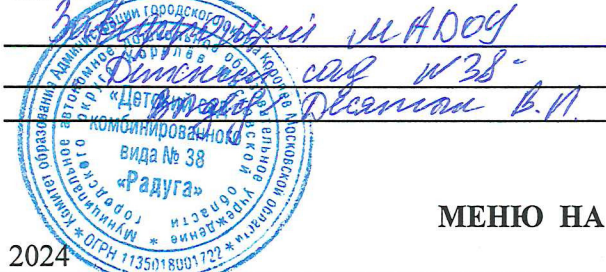 Заведующий МАДОУ
Детский сад №38
Десятик В.П.
Комитет образования Администрации городского округа Королёв Московской области *
Муниципальное автономное дошкольное образовательное учреждение *
городского округа Королёв Московской области
«Детский сад
комбинированного
вида № 38
«Радуга»
* ОГРН 1135018001722 *
МЕНЮ НА
2024